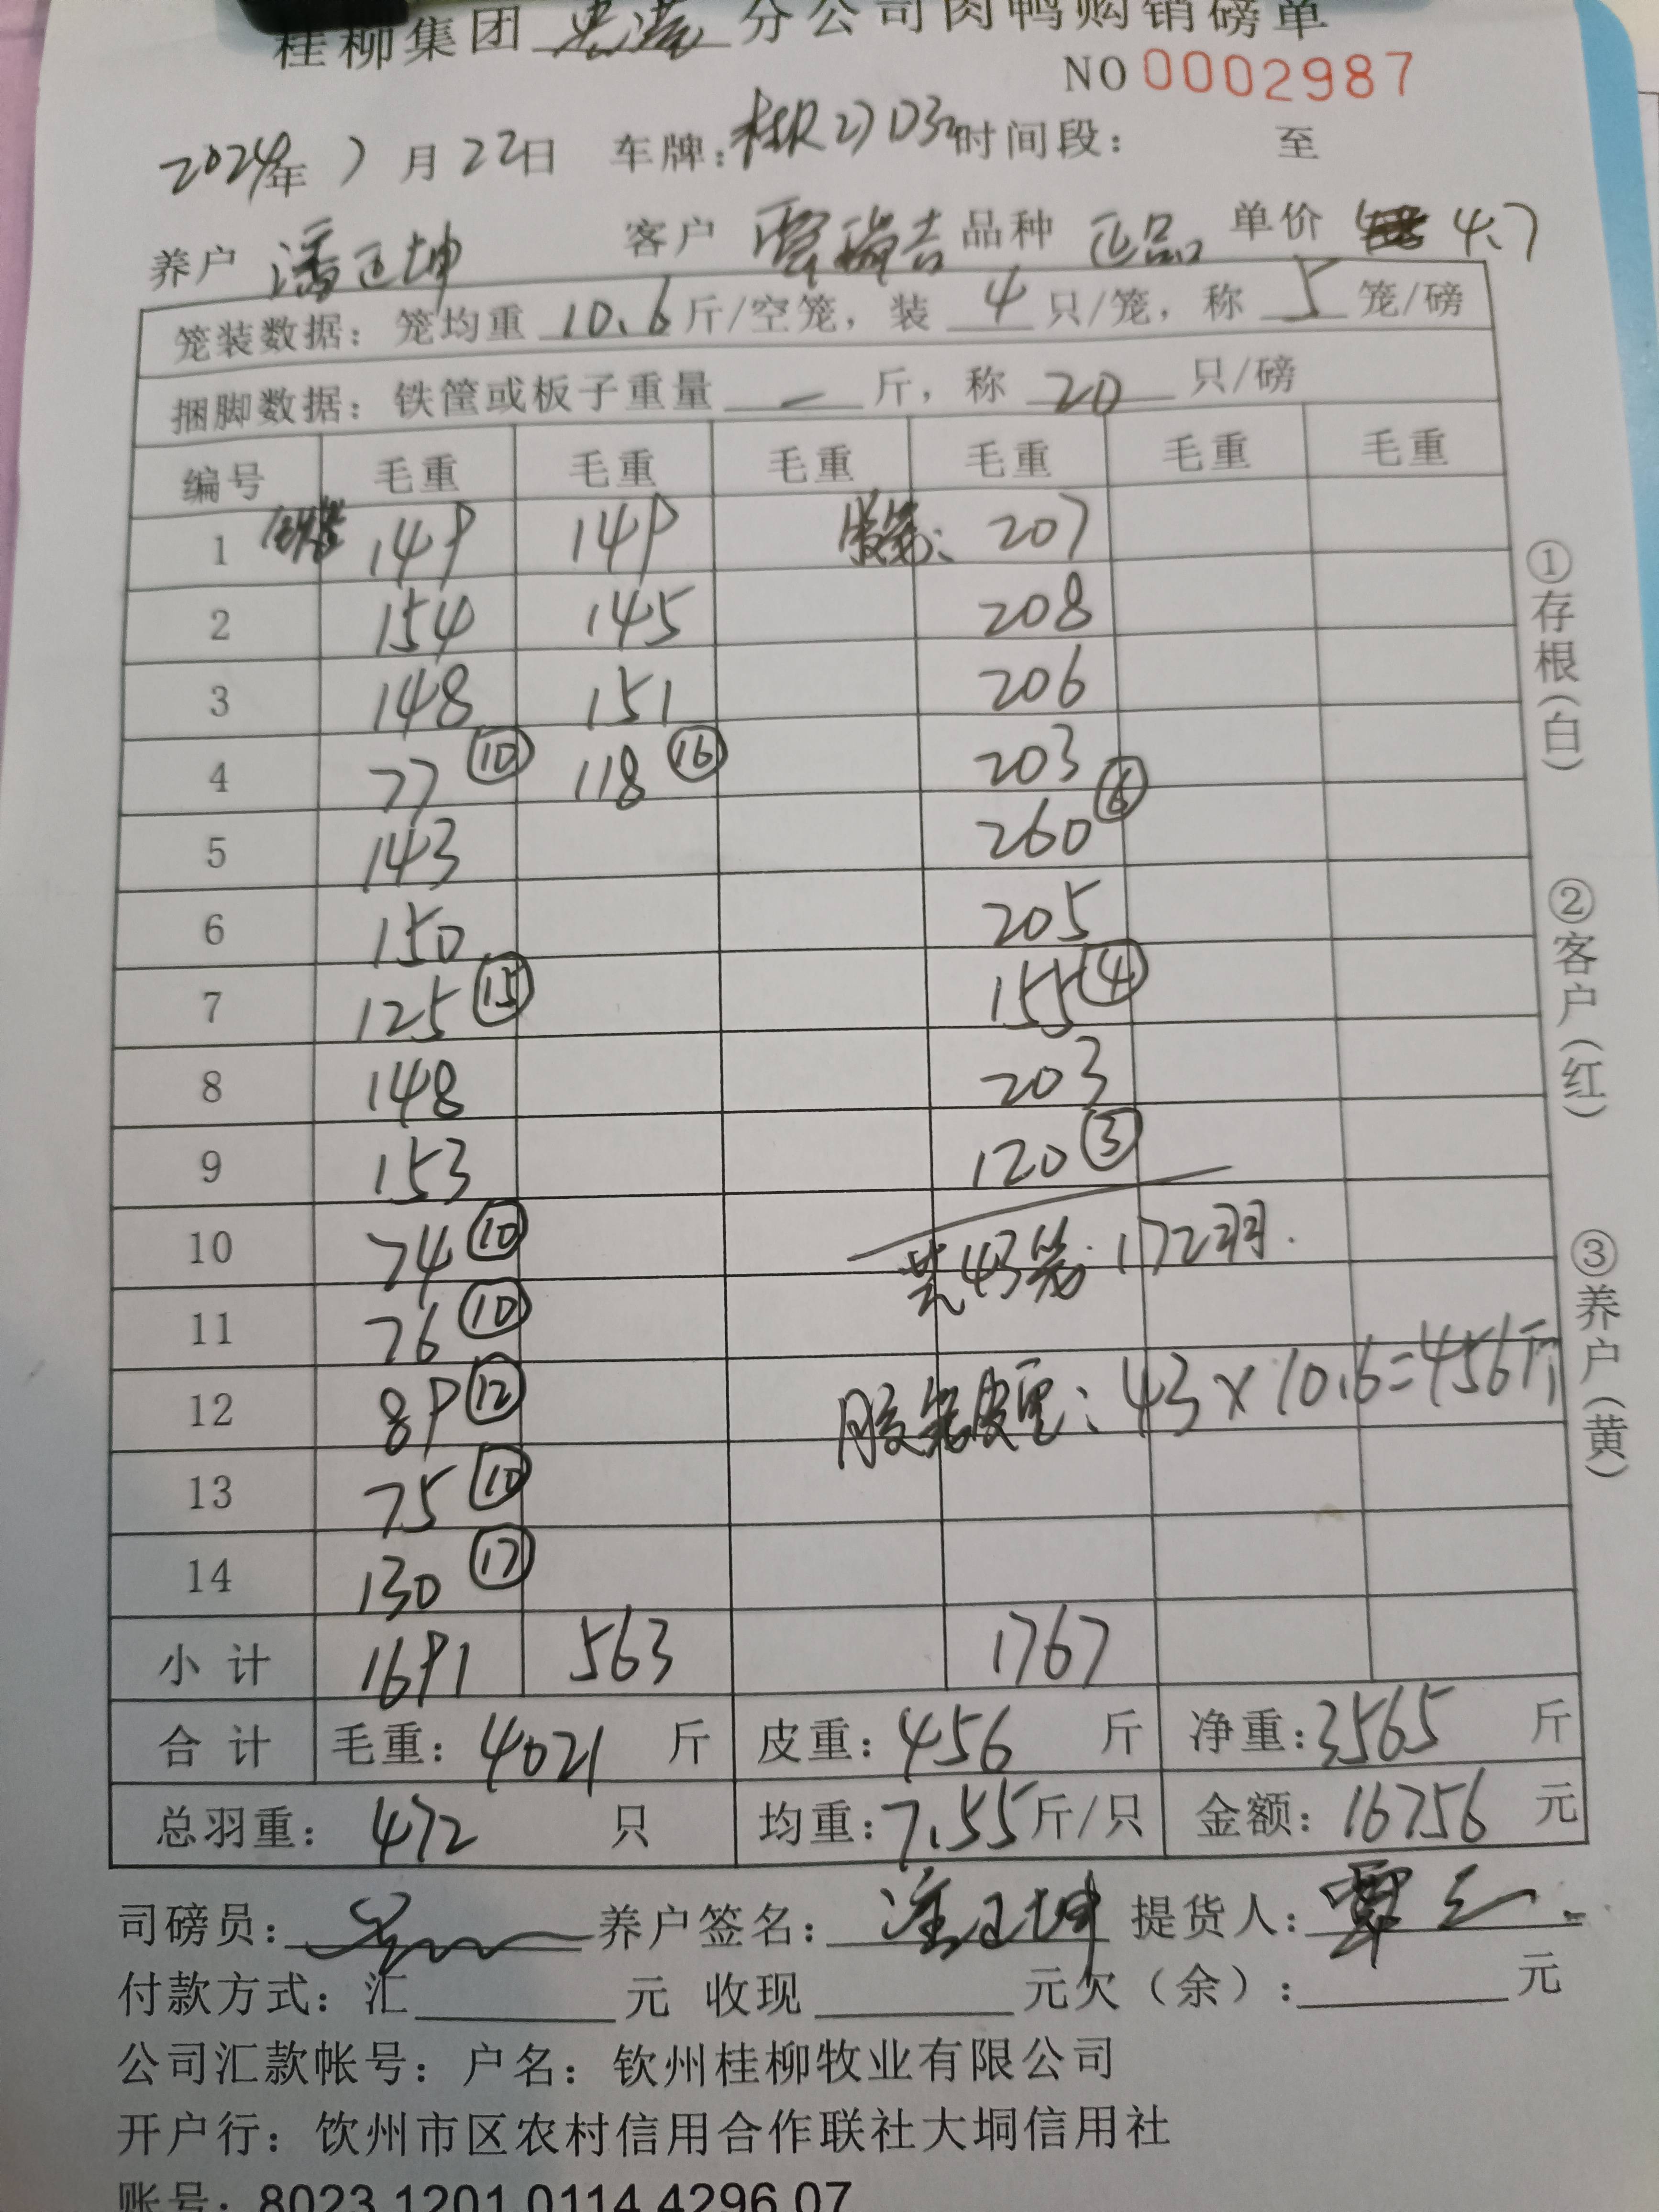 桂柳集团 贵港 分公司肉鸭购销磅单
NO 0002987
2024年 7 月 22日 车牌: 时间段: 至
养户 潘正坤 客户 覃瑞吉 品种 正品 单价 4.7
笼装数据: 笼均重 10.6 斤/空笼, 装 4 只/笼, 称 5 笼/磅
捆脚数据: 铁筐或板子重量 — 斤, 称 20 只/磅
编号 毛重 毛重 毛重 毛重 毛重 毛重
1 149 149 胶笼: 207
2 154 145 208
3 148 151 206
4 77 ⑩ 118 ⑯ 203
5 143 260 ⑥
6 150 205
7 125 ⑮ 155 ④
8 148 203
9 153 120 ③
10 74 ⑩ 共43笼. 172羽.
11 76 ⑩
12 89 ⑫ 胶笼皮重: 43×10.6=456斤
13 75 ⑩
14 130 ⑰
小 计 1691 563 1767
合 计 毛重: 4021 斤 皮重: 456 斤 净重: 3565 斤
总羽重: 472 只 均重: 7.55 斤/只 金额: 16756 元
司磅员: 养户签名: 潘正坤 提货人: 覃
付款方式: 汇 元 收现 元欠(余): 元
公司汇款帐号: 户名: 钦州桂柳牧业有限公司
开户行: 钦州市区农村信用合作联社大垌信用社
账号: 8023 1201 0114 4296 07
①存根(白)
②客户(红)
③养户(黄)